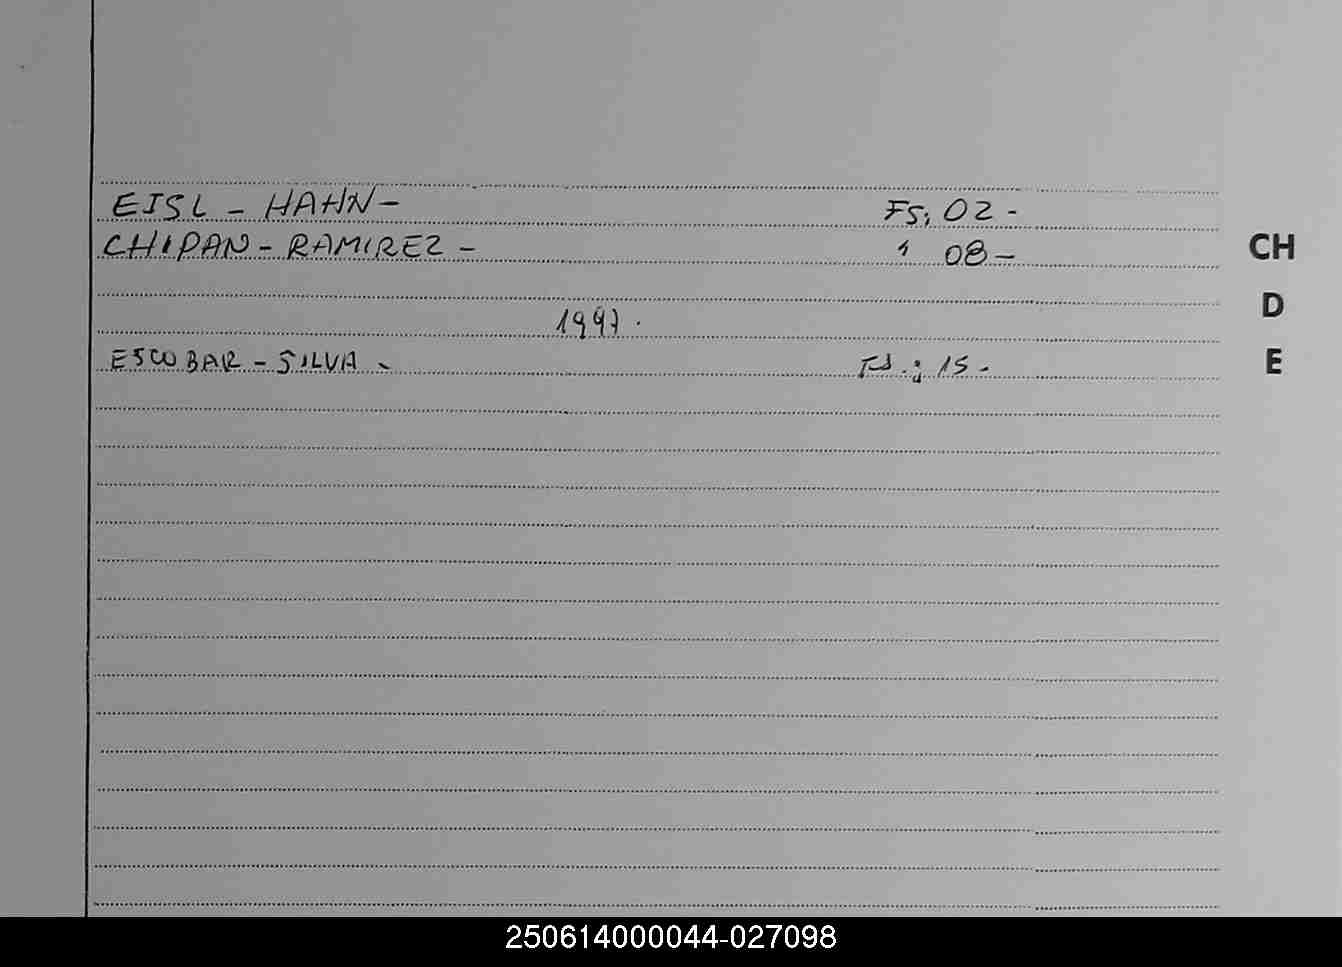 EISL - HAHN - FS; 02 -
CHIPAN - RAMIREZ - " 08 -
CH
D
1997.
ESCOBAR - SILVA - FS.: 15 -
E
250614000044-027098